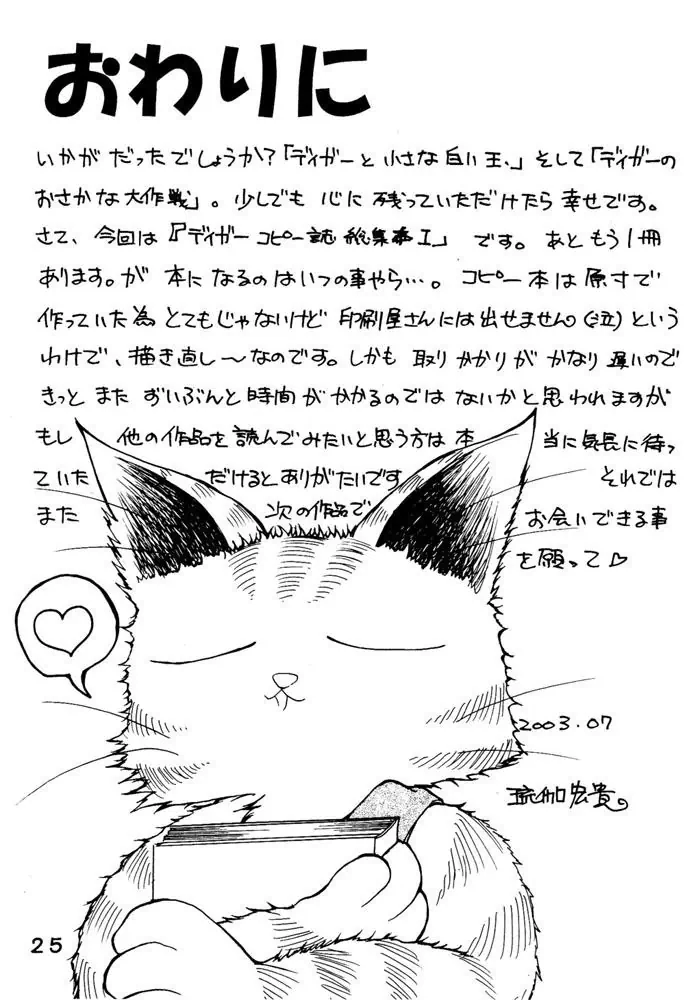 おわりに
いかがだったでしょうか?「ディガーと小さな白い玉、」そして「ディガーの
おさかな大作戦」。少しでも心に残っていただけたら幸せです。
さて、今回は『ディガーコピー誌総集本I』です。あともう1冊
あります。が本になるのはいつの事やら…。コピー本は原寸で
作っていた為とてもじゃないけど印刷屋さんには出せません(泣)という
わけで、描き直し〜なのです。しかも取りかかりがかなり遅いので
きっとまたずいぶんと時間がかかるのではないかと思われますが
もし他の作品を読んでみたいと思う方は本当に気長に待っ
ていただけるとありがたいです それでは
また次の作品でお会いできる事
を願って♡
2003.07
宏貴。
25